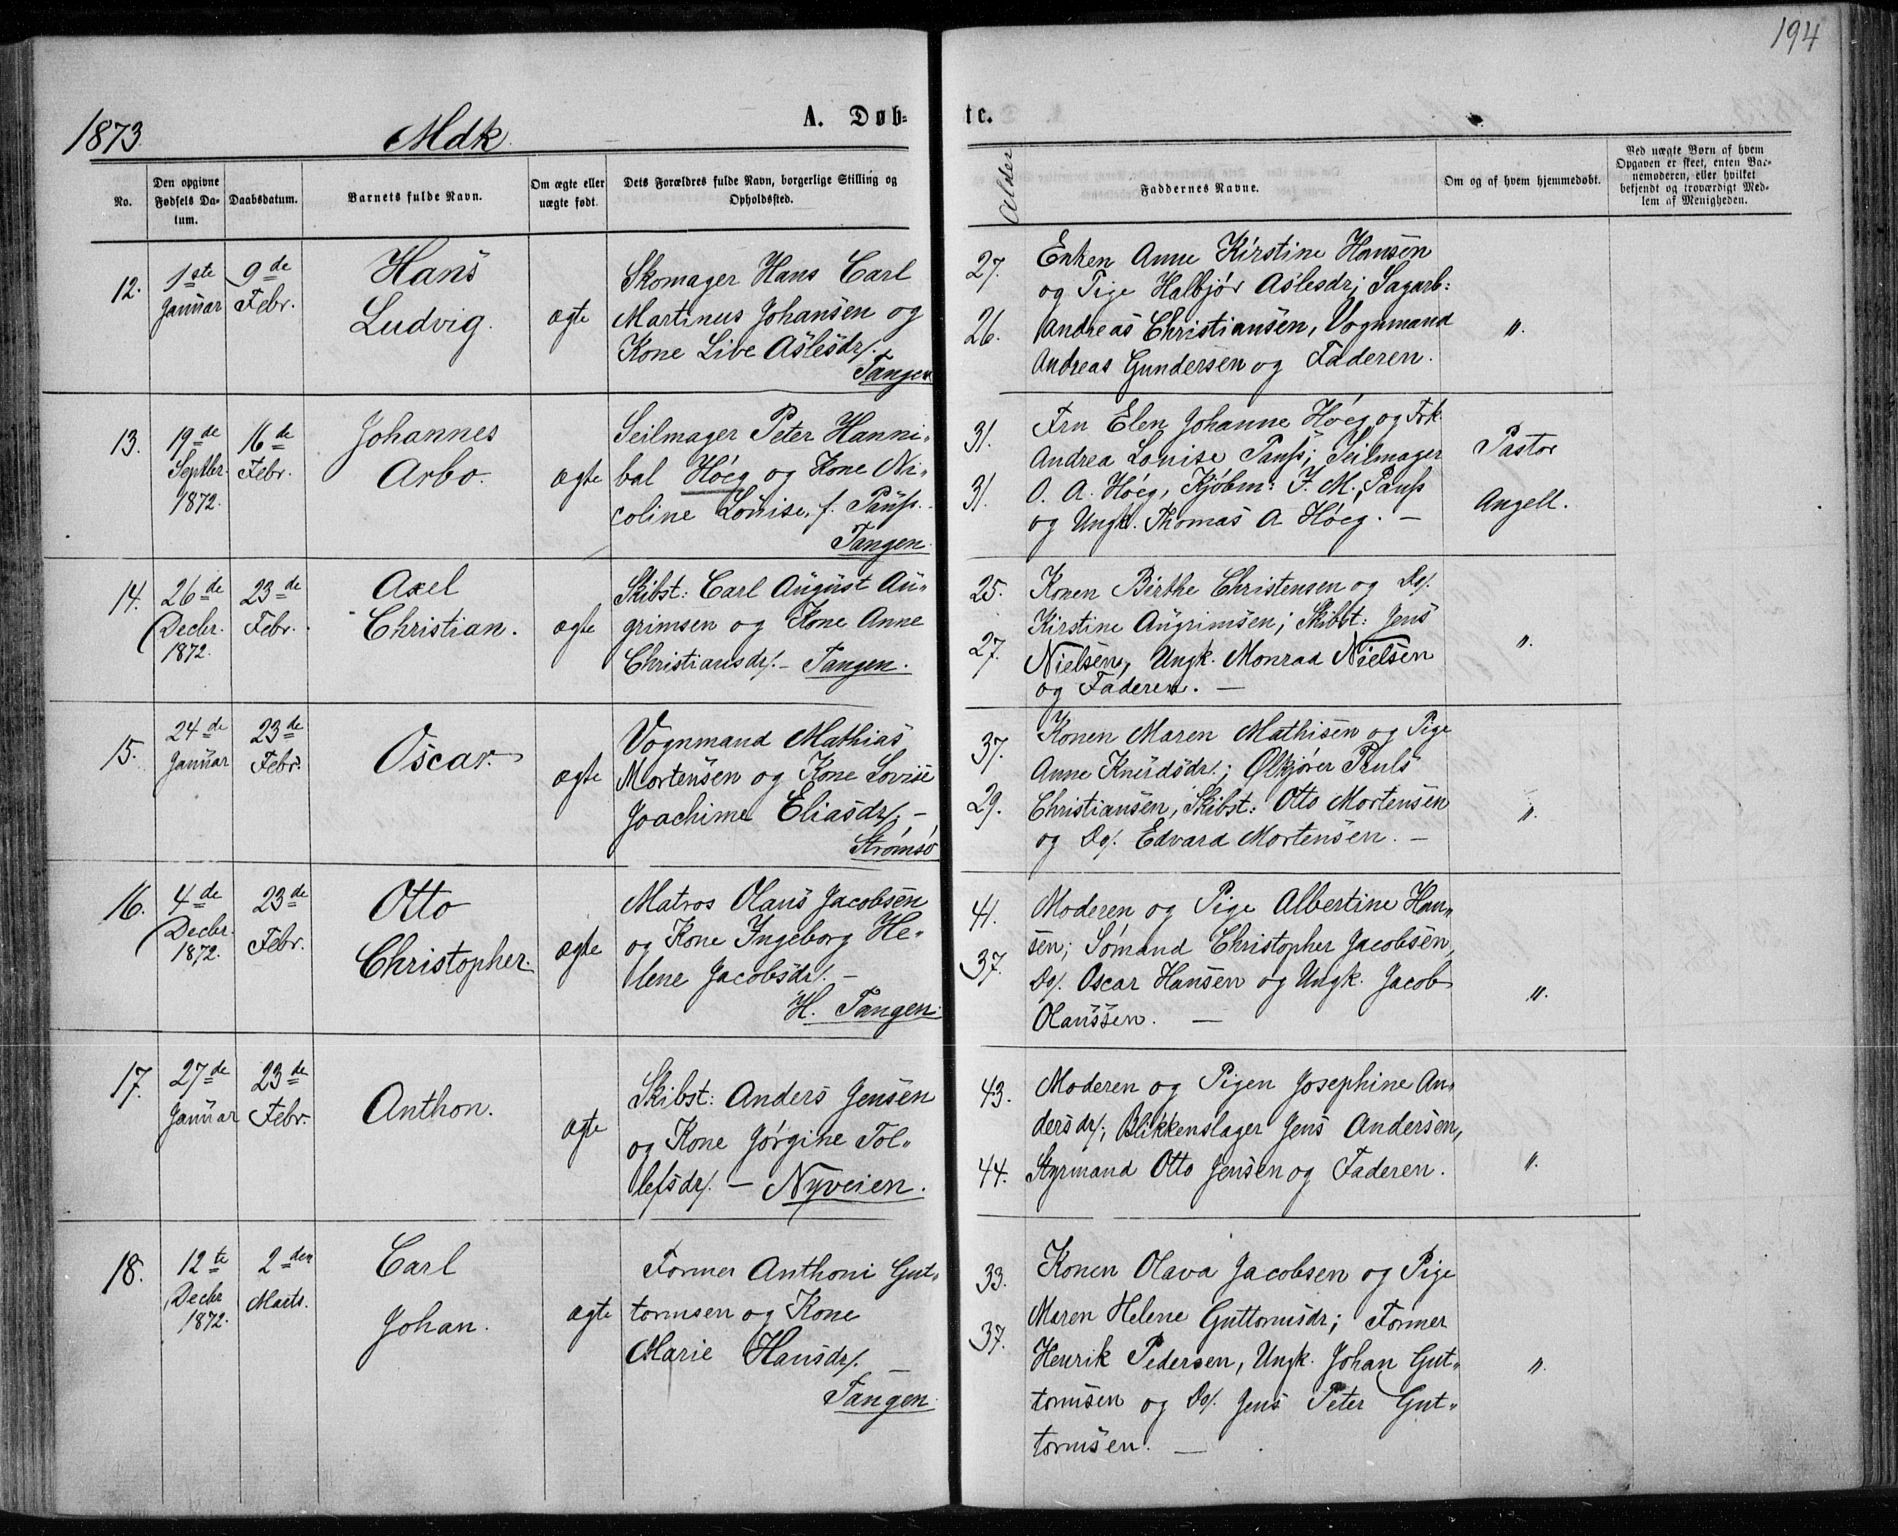 194
1873.
Mdk.
A. Døb-
te.
No.
Den opgivne
Fødsels Da-
tum.
Daabsdatum.
Barnets fulde Navn.
Om ægte eller
uægte født.
Dets Forældres fulde Navn, borgerlige Stilling og
Opholdssted.
Alder
Faddernes Navne.
Om og af hvem hjemmedøbt.
Ved uægte Børn af hvem
Opgaven er skeet, enten Bar-
nemoderen, eller hvilket
bekjendt og troværdigt Med-
lem af Menigheden.
12.
1ste
Januar
9de
Febr.
Hans
Ludvig.
ægte
Skomager Hans Carl
Martinus Johansen og
Kone Live Aslesdr.
Tangen
27.
26.
Enken Anne Kirstine Hansen
og Pige Halbjør Aslesdr; Sagarb:
Andreas Christiansen, Vognmand
Andreas Gundersen og Faderen.
"
13.
19de
Septbr.
1872.
16de
Febr.
Johannes
Arbo.
ægte
Seilmager Peter Hanni-
bal Høeg og Kone Ni-
coline Louise, f. Pauss.
Tangen.
31.
31.
Fru Elen Johanne Høeg og Frk.
Andrea Louise Pauss; Seilmager
O. A. Høeg, Kjøbm: J. M. Pauss
og Ungk. Thomas A Høeg. —
Pastor
Angell.
14.
26de
Decbr.
1872.
23de
Febr.
Axel
Christian.
ægte
Skibst: Carl August Au-
grimsen og Kone Anne
Christiansdr. – Tangen.
25.
27.
Konen Birthe Christensen og Do/.
Kirstine Augrimsen; Skibst: Jens
Nielsen, Ungk. Monrad Nielsen
og Faderen. —
"
15.
24de
Januar
23de
Febr.
Oscar.
ægte
Vognmand Mathias
Mortensen og Kone Lovise
Joachime Eliasdr. –
Strømsø
37.
29.
Konen Maren Mathisen og Pige
Anne Knudsdr.; Ølkjører Truls
Christiansen, Skibst: Otto Mortensen
og Do/. Edvard Mortensen. —
"
16.
4de
Decbr.
1872.
23de
Febr.
Otto
Christopher.
ægte
Matros Olaus Jacobsen
og Kone Ingeborg He-
lene Jacobsdr. –
H. Tangen.
41.
37.
Moderen og Pige Albertine Han-
sen; Sømand Christopher Jacobsen,
Do/. Oscar Hansen og Ungk. Jacob
Olaussen. —
"
17.
27de
Januar
23de
Febr.
Anthon.
ægte
Skibst: Anders Jensen
og Kone Jørgine Tol-
lefsdr. – Nyveien.
43.
44.
Moderen og Pigen Josephine An-
dersdr.; Blikkenslager Jens Andersen,
Styrmand Otto Jensen og Faderen.
"
18.
12te
Decbr
1872.
2den
Marts.
Carl
Johan.
ægte
Former Anthoni Gut-
tormsen og Kone
Marie Hansdr. —
Tangen.
33.
37.
Konen Olava Jacobsen og Pige
Maren Helene Guttormsdr; Former
Henrik Pedersen, Ungk. Johan Gut-
tormsen og Do/. Jens Peter Gut-
tormsen. —
"